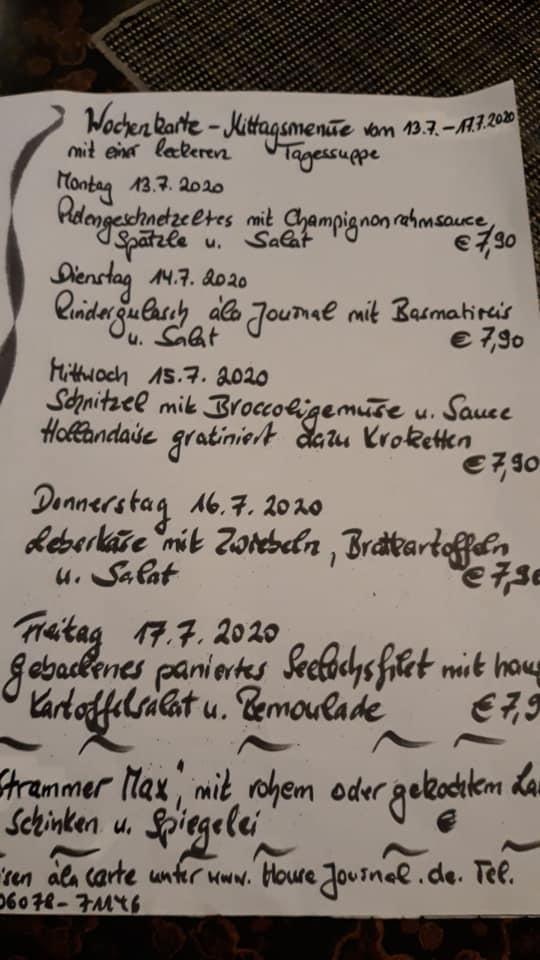 Wochenkarte - Mittagsmenüe vom 13.7. - 17.7.2020
mit einer leckeren Tagessuppe
Montag 13.7.2020
Putengeschnetzeltes mit Champignonrahmsauce,
Spätzle u. Salat € 7,90
Dienstag 14.7.2020
Rindergulasch àla Journal mit Basmatireis
u. Salat € 7,90
Mittwoch 15.7.2020
Schnitzel mit Broccoligemüse u. Sauce
Hollandaise gratiniert dazu Kroketten
€ 7,90
Donnerstag 16.7.2020
Leberkäse mit Zwiebeln, Bratkartoffeln
u. Salat € 7,90
Freitag 17.7.2020
Gebackenes paniertes Seelachsfilet mit haus
Kartoffelsalat u. Remoulade € 7,9
Strammer Max", mit rohem oder gekochtem
Schinken u. Spiegelei €
isen àla carte unter www. House Journal.de. Tel.
06078-71146